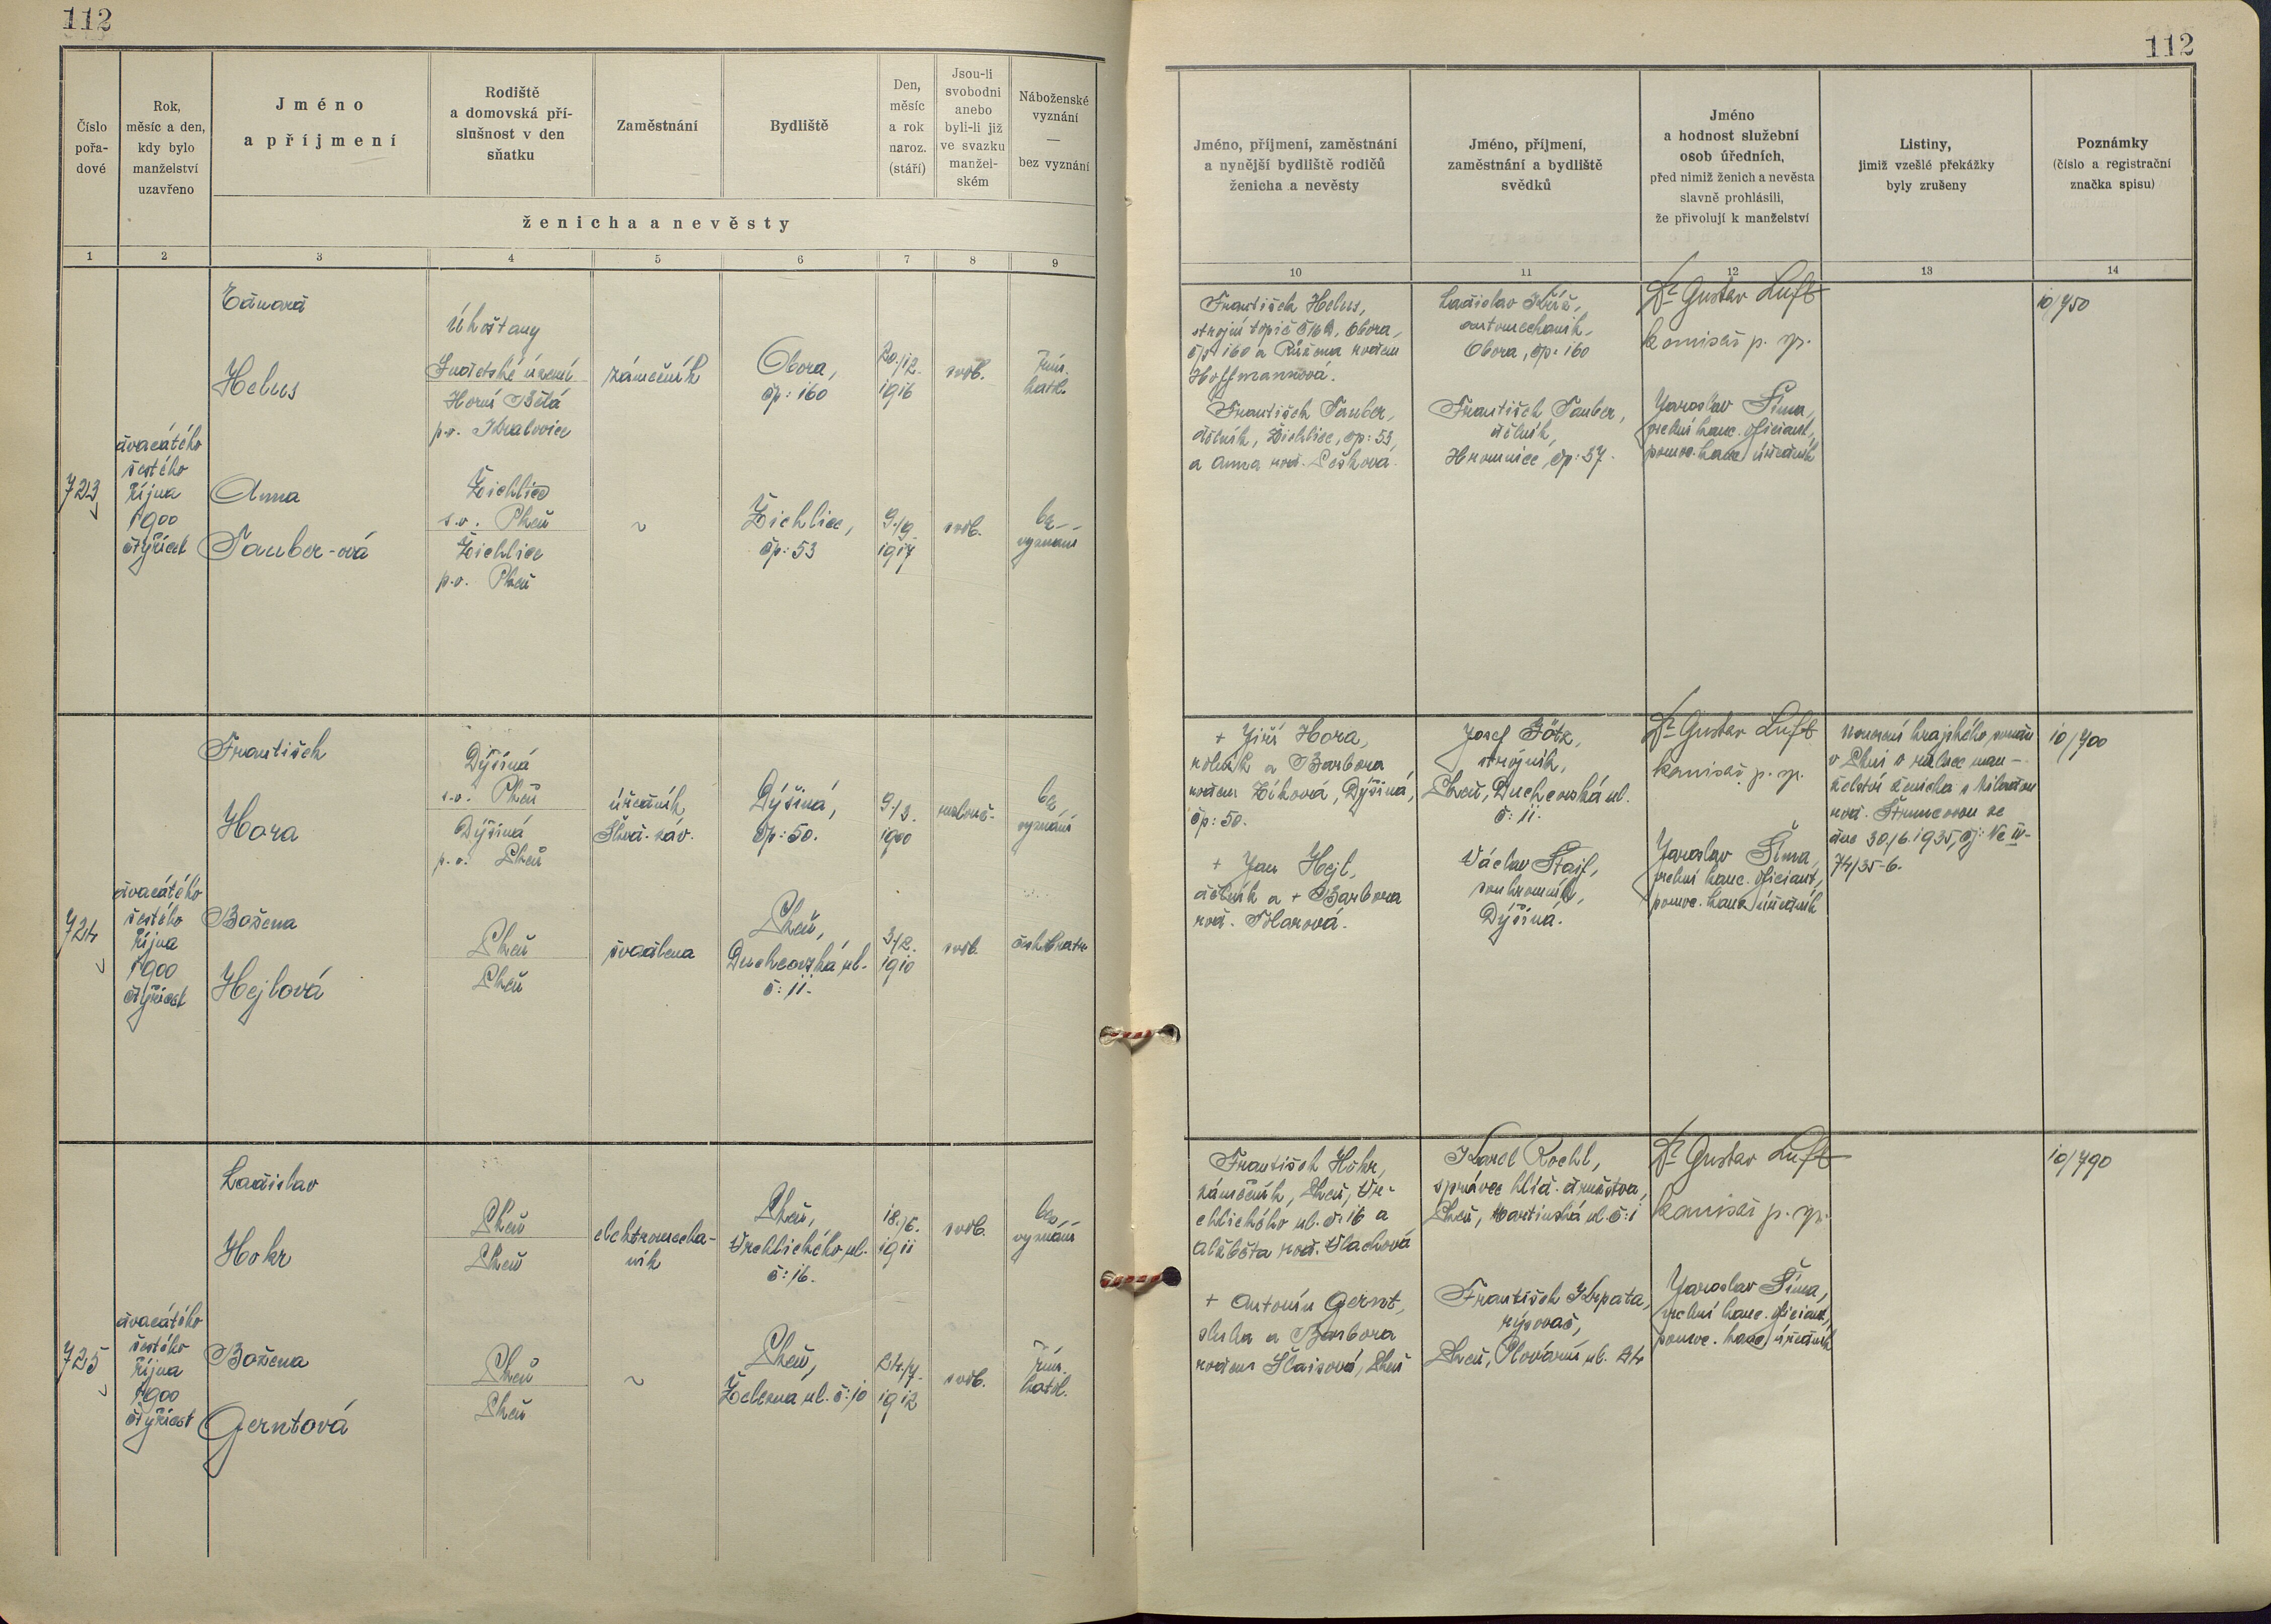 112
112
Číslo
pořa-
dové
Rok,
měsíc a den,
kdy bylo
manželství
uzavřeno
Jméno
a příjmení
Rodiště
a domovská pří-
slušnost v den
sňatku
Zaměstnání
Bydliště
Den,
měsíc
a rok
naroz.
(stáří)
Jsou-li
svobodni
anebo
byli-li již
ve svazku
manžel-
ském
Náboženské
vyznání
—
bez vyznání
ženicha a nevěsty
Jméno, příjmení, zaměstnání
a nynější bydliště rodičů
ženicha a nevěsty
Jméno, příjmení,
zaměstnání a bydliště
svědků
Jméno
a hodnost služební
osob úředních,
před nimiž ženich a nevěsta
slavně prohlásili,
že přivolují k manželství
Listiny,
jimiž vzešlé překážky
byly zrušeny
Poznámky
(číslo a registrační
značka spisu)
1 2 3 4 5 6 7 8 9
10 11 12 13 14
723
dvacátého
šestého
října
1900
čtyřicet
Eduard
Helus
Úhošťany
Sudetské území
Horní Bělá
p.o. Kralovice
zámečník
Obora,
čp: 160
20./12.
1916
svob.
řím.
kath.
Anna
Tauber-ová
Žichlice
s.o. Plzeň
Žichlice
p.o. Plzeň
~
Žichlice,
čp: 53
9./9.
1917
svob.
bez
vyznání
František Helus,
strojní topič ČMD, Obora,
čp: 160 a Růžena rozem
Hoffmannová.
František Tauber,
dělník, Žichlice, čp: 53,
a Anna roz. Lešková.
Ladislav Kříž,
automechanik,
Obora, čp: 160
František Tauber,
dělník,
Hromnice, čp: 57.
Dr Gustav Luft
komisař p. sp.
Jaroslav Šíma,
vrchní kanc. oficiant,
pomoc. kanc. úředník
10/750
724
dvacátého
šestého
října
1900
čtyřicet
František
Hora
Dýšiná
s.o. Plzeň
Dýšiná
p.o. Plzeň
úředník
Škod. záv.
Dýšiná,
čp: 50.
9./3.
1900
rozlouč.
bez
vyznání
Božena
Hejlová
Plzeň
Plzeň
švadlena
Plzeň,
Duchcovská ul.
č: 11.
3/2.
1910
svob.
česk bratr
+ Jiří Hora,
rolník a Barbora
rozem Zíková, Dýšiná,
čp: 50.
+ Jan Hejl,
dělník a + Barbora
roz. Marová.
Josef Götz,
strojník,
Plzeň, Duchcovská ul.
č: 11.
Václav Štajf,
soukromník,
Dýšiná.
Dr Gustav Luft
komisař p. sp.
Jaroslav Šíma,
vrchní kanc. oficiant,
pomoc. kanc. úředník
Usnesení krajského soudu
v Plzni o rozluce man-
želství ženicha s Miladou
roz.
dne 30./6.1935, čj: Nc IV-
74/35-6.
10/700
725
dvacátého
šestého
října
1900
čtyřicet
Ladislav
Hokr
Plzeň
Plzeň
elektromecha-
nik
Plzeň,
Vrchlického ul.
č: 16.
18./6.
1911
svob.
bez
vyznání
Božena
Gerntová
Plzeň
Plzeň
~
Plzeň,
Železna ul. č: 10
24./7.
1912
svob.
řím.
kathl.
František Hokr,
zámečník, Plzeň, Vr-
chlického ul. č: 16 a
Alžběta roz. Vlachová
+ Antonín Gernt,
sluha a Barbora
rozem Šlaisová, Plzeň
Karel Rochl,
správce hlíd. družstva,
Plzeň, Martinská ul. č: 1
František Krpata,
rýsovač,
Plzeň, Plovární ul. 24
Dr Gustav Luft
komisař p. sp.
Jaroslav Šíma,
vrchní kanc. oficiant,
pomoc. kanc. úředník
10/790